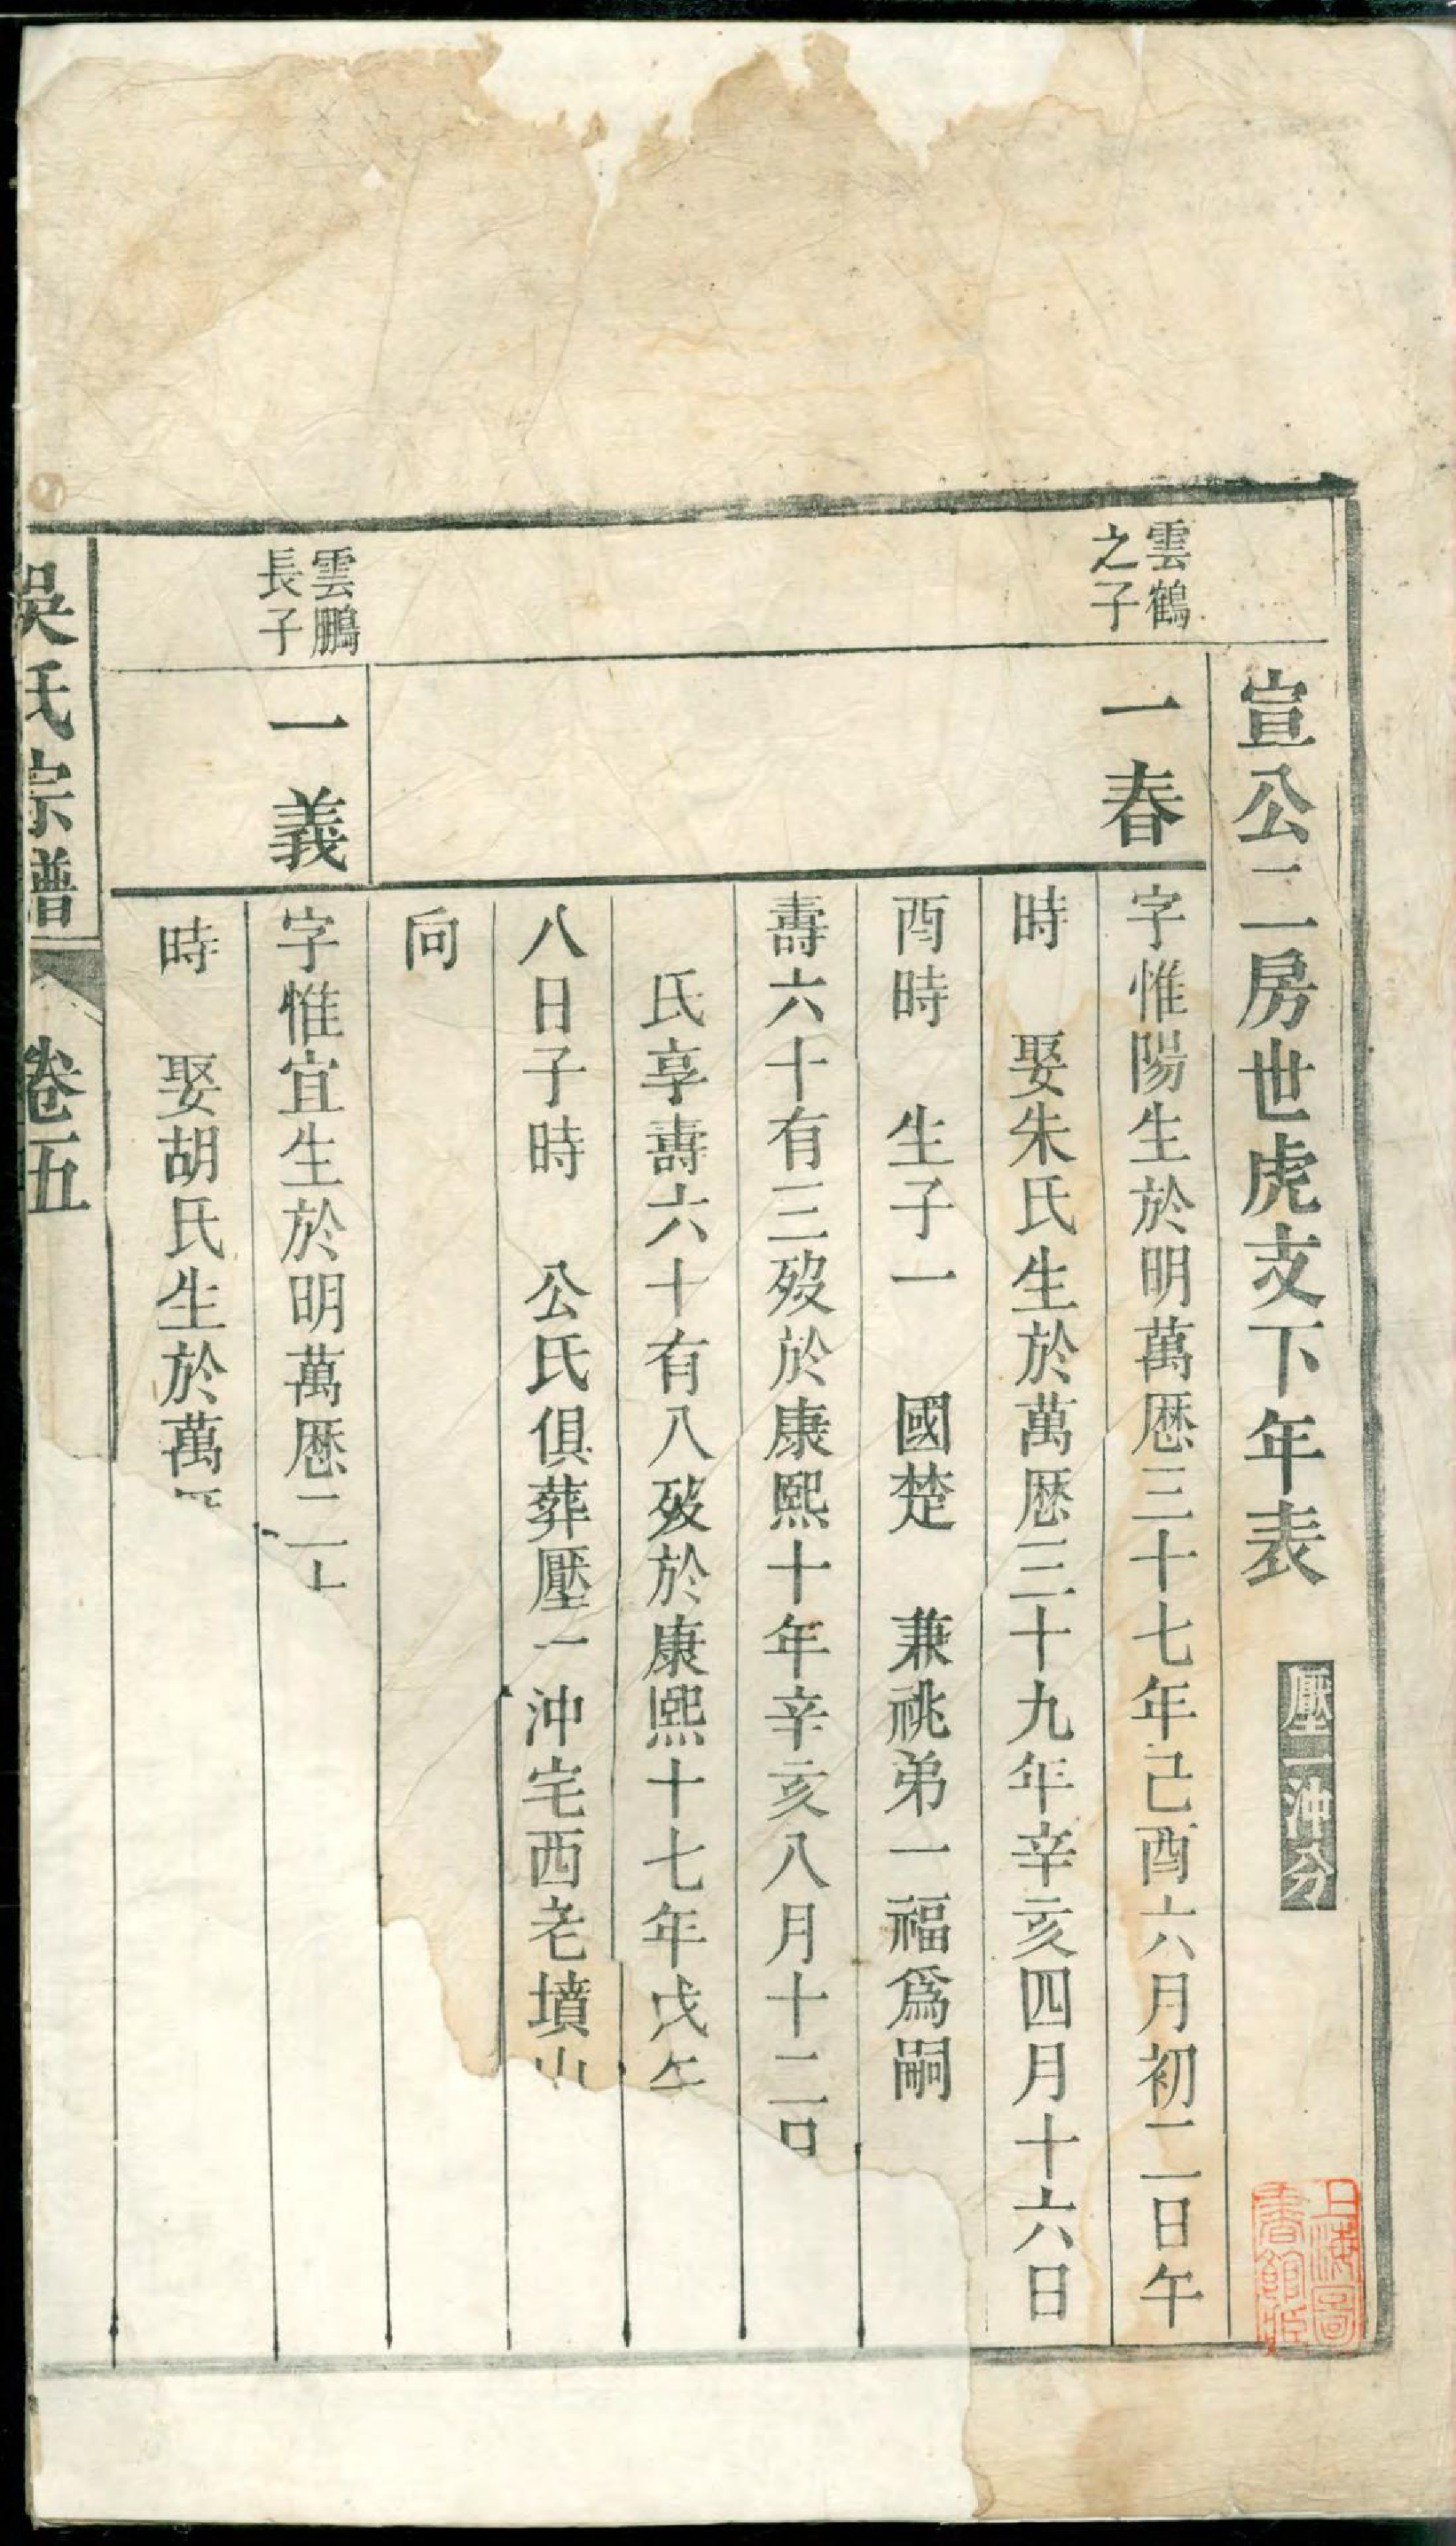 宣公二房世虎支下年表
壓一沖分
雲鶴
之子
一春
字惟陽生於明萬厯三十七年己酉六月初二日午
時　娶朱氏生於萬厯三十九年辛亥四月十六日
酉時　生子一　國楚　兼祧弟一福爲嗣
壽六十有三歿於康熙十年辛亥八月十二日
氏享壽六十有八歿於康熙十七年戊午
八日子時　公氏俱葬壓一沖宅西老墳山
向
雲鵬
長子
一義
字惟宜生於明萬厯二十
時　娶胡氏生於萬
吳氏宗譜
卷五
上海圖
書館藏